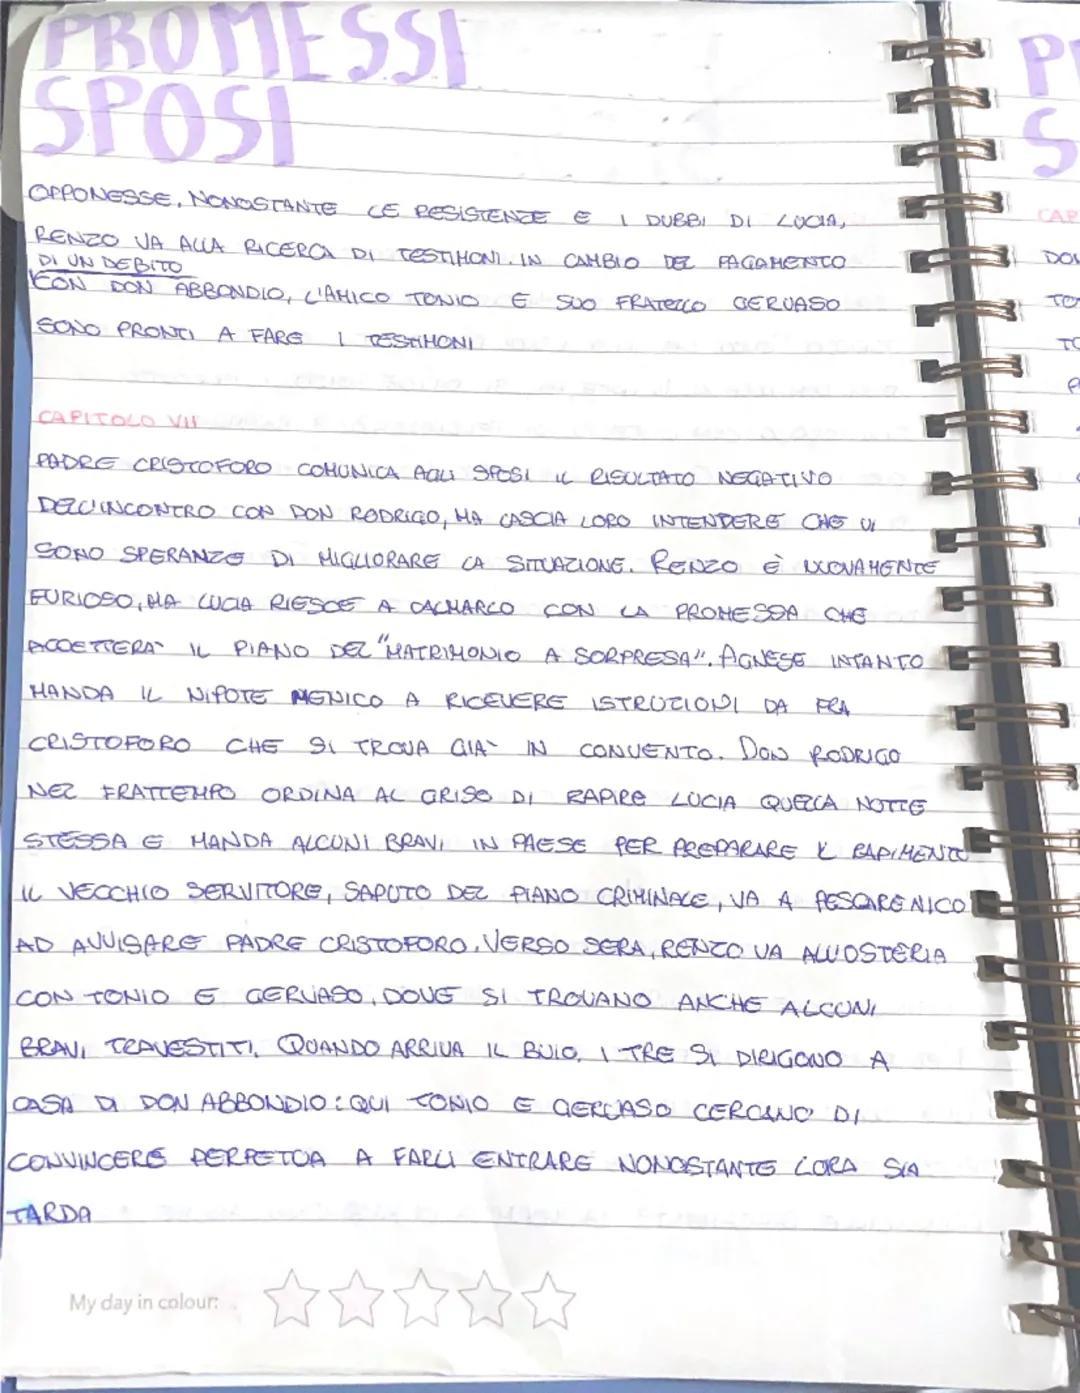 PROMESSI
SPOSI
OPPONESSE. NONOSTANTE LE RESISTENZE E I DUBBI DI LUCIA,
RENZO VA ALLA RICERCA DI TESTIMONI. IN CAMBIO DEL PAGAMENTO
DI UN DEBITO
CON DON ABBONDIO, L'AMICO TONIO E SUO FRATELLO GERVASO
SONO PRONTI A FARE I TESTIMONI
CAPITOLO VII
PADRE CRISTOFORO COMUNICA AGLI SPOSI IL RISULTATO NEGATIVO
DELL'INCONTRO CON DON RODRIGO, MA LASCIA LORO INTENDERE CHE VI
SONO SPERANZE DI MIGLIORARE LA SITUAZIONE. RENZO È NUOVAMENTE
FURIOSO, MA LUCIA RIESCE A CALMARLO CON LA PROMESSA CHE
ACCETTERA' IL PIANO DEL "MATRIMONIO A SORPRESA". AGNESE INTANTO
MANDA IL NIPOTE MENICO A RICEVERE ISTRUZIONI DA FRA
CRISTOFORO CHE SI TROVA GIA' IN CONVENTO. DON RODRIGO
NEL FRATTEMPO ORDINA AL GRISO DI RAPIRE LUCIA QUELLA NOTTE
STESSA E MANDA ALCUNI BRAVI IN PAESE PER PREPARARE IL RAPIMENTO
IL VECCHIO SERVITORE, SAPUTO DEL PIANO CRIMINALE, VA A PESCARENICO
AD AVVISARE PADRE CRISTOFORO. VERSO SERA, RENZO VA ALL'OSTERIA
CON TONIO E GERVASO, DOVE SI TROVANO ANCHE ALCUNI
BRAVI TRAVESTITI. QUANDO ARRIVA IL BUIO, I TRE SI DIRIGONO A
CASA DI DON ABBONDIO: QUI TONIO E GERVASO CERCANO DI
CONVINCERE PERPETUA A FARLI ENTRARE NONOSTANTE L'ORA SIA
TARDA
My day in colour: